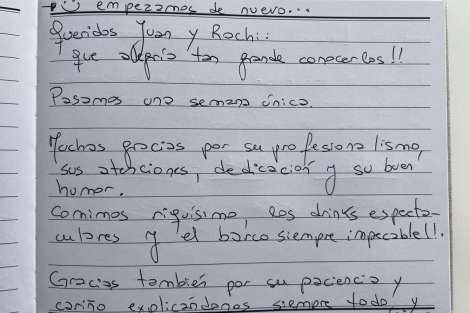 empezamos de nuevo...
Queridos Juan y Rochi:
que alegria tan grande conocerlos!!
Pasamos una semana única.
Muchas gracias por su profesionalismo,
sus atenciones, dedicación y su buen
humor.
Comimos riquísimo, los drinks especta-
culares y el barco siempre impecable!!.
Gracias también por su paciencia y
cariño explicándonos siempre todo, y